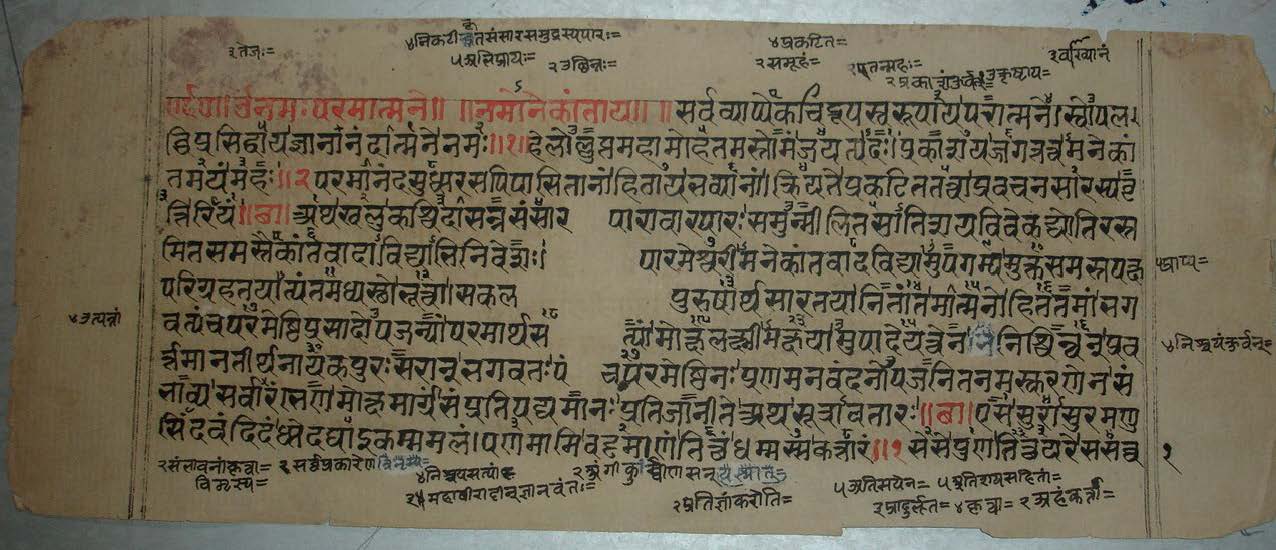 ३तेजः= ४निकटीकृतसंसारसमुद्रस्यपारः= ४प्रकटित= ३वर्त्तिष्यानं
५अभिप्रायः= २उच्छिन्नः= २समूहं=
॥र्ननमःपरमात्मने॥ ॥नमोनेकांताय॥ ॥सर्वव्याप्येकचिद्रूपस्वरूपायपरात्मने।स्वोपल
ब्धिप्रसिद्धायज्ञानानंदात्मनेनमः॥१॥हेलोल्लुप्तमहामोहतमस्तोमंजयत्यदः।प्रकाशयज्जगत्तत्वमनेकां
तमयंमहः॥२परमानंदसुधारसपिपासितानांहितायभव्यानां।क्रियतेप्रकटिततत्वाप्रवचनसारस्यवृ
त्तिरियं॥छा॥अथखलुकश्चिदासन्नसंसार पारावारपारःसमुन्मीलितसातिशयविवेकज्योतिरस्त
मितसमस्तैकांतवादाविद्याभिनिवेशः। पारमेश्वरीमनेकांतवादविद्यामुपगम्यमुक्तसमस्तपक्ष
परिग्रहतयात्यंतमध्यस्थोभूत्वा।सकल पुरुषार्थसारतयानितांतमात्मनोहिततमांभग
वत्पंचपरमेष्ठिप्रसादोपजन्यांपरमार्थस त्यांमोक्षलक्ष्मीमक्षयामुपादेयत्वेननिश्चिन्वन्प्रव
र्त्तमानतीर्थनायकपुरःसरान्भगवतःपं चपरमेष्ठिनःप्रणमनवंदनोपजनितनमस्करणेनसं
भाव्यसर्वारंभेणमोक्षमार्गंसंप्रतिपद्यमानःप्रतिजानीतेअथसूत्रावतारः॥छा॥एससुरासुरमणु
सिंदवंदिदंधोदघाइकम्ममलं।पणमामिवढ्ढमाणंतित्थंधम्मस्सकत्तारं॥१सेसेपुणतित्थयरेससव्व
५प्राप्य=
४उत्पन्नां
४निश्चयंकुर्वन्=
१
२संभावनांकृत्वा= १सर्वप्रकारेण ४निश्चयसत्यां
२प्रतिज्ञांकरोति= ५अतिसयेन= ५अतिशयसहितां=
३प्रादुर्भूत= ४कृत्वा= २अहंकर्त्ता=